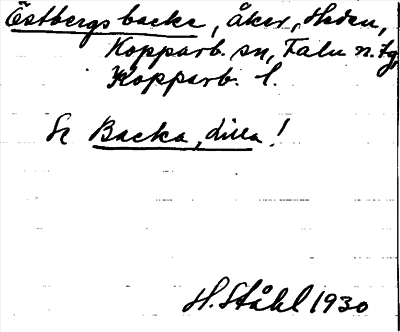 Östbergsbacke, åker, Heden,
Kopparb. sn, Falu n. tg,
Kopparb. l.
Se Backa, dilla!
H. Ståhl 1930